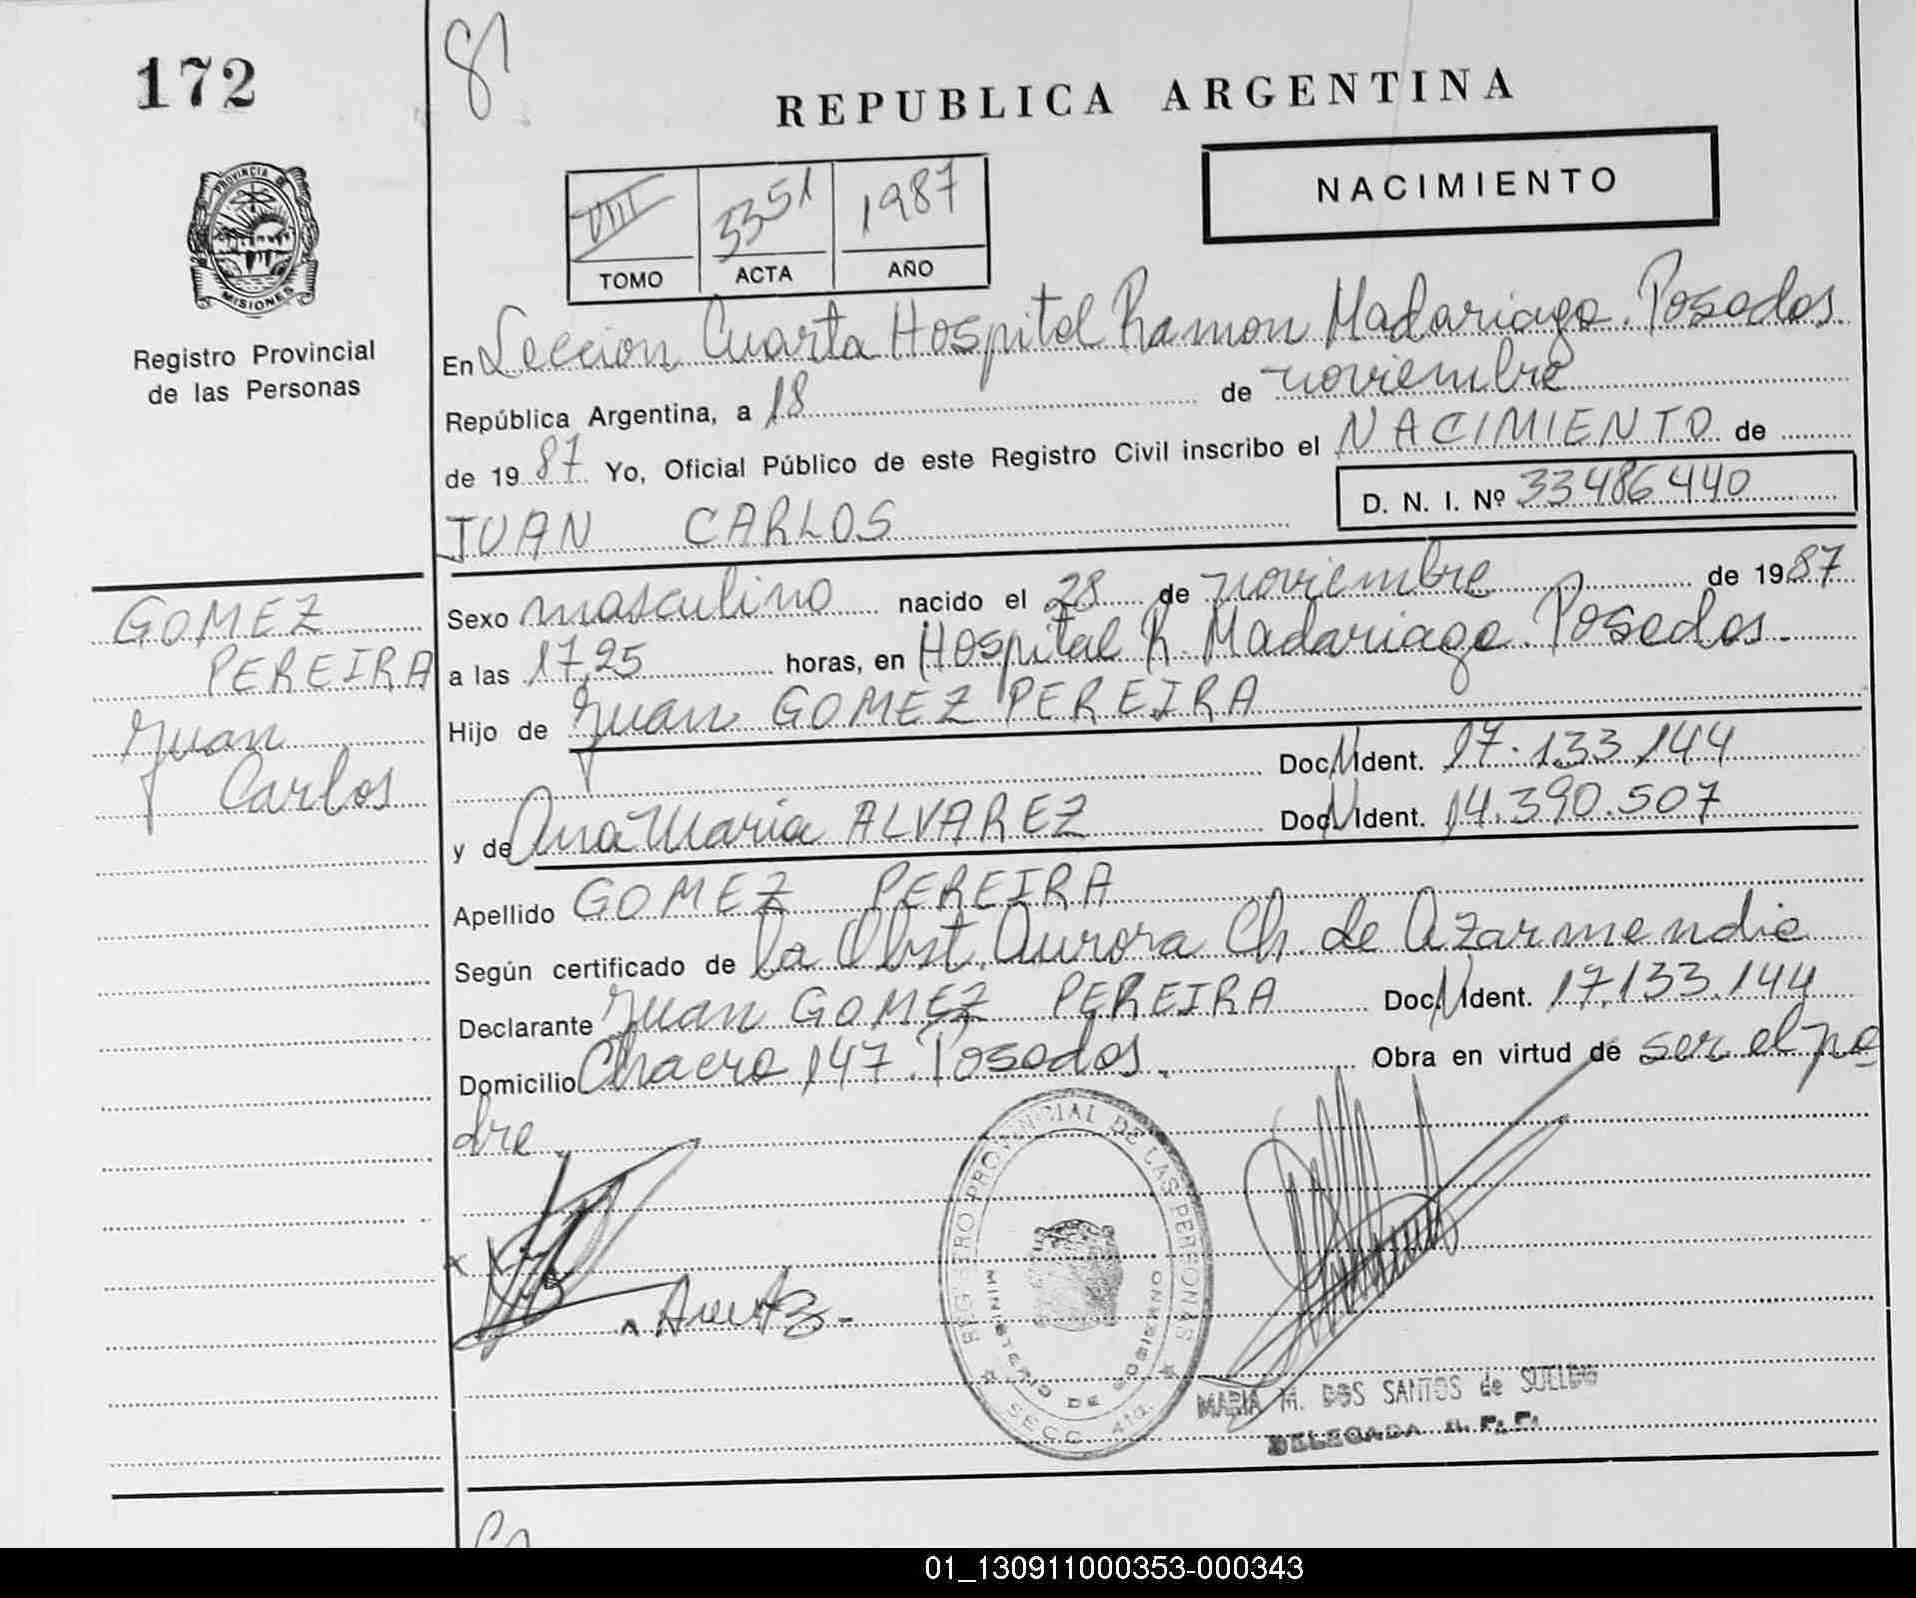 172
81
REPUBLICA ARGENTINA
NACIMIENTO
VIII 3351 1987
TOMO ACTA AÑO
PROVINCIA DE
MISIONES
Registro Provincial
de las Personas
En Seccion Cuarta Hospital Ramon Madariaga. Posadas.
República Argentina, a 18 de noviembre
de 1987 Yo, Oficial Público de este Registro Civil inscribo el NACIMIENTO de
D. N. I. Nº 33486440
JUAN CARLOS
GOMEZ
PEREIRA
Juan
Carlos
Sexo masculino nacido el 28 de noviembre de 1987
a las 17,25 horas, en Hospital R. Madariaga. Posadas.
Hijo de Juan GOMEZ PEREIRA
Doc. N Ident. 17.133.144
y de Ana Maria ALVAREZ Doc. N Ident. 14.390.507
Apellido GOMEZ PEREIRA
Según certificado de la Obst. Aurora Ch. de Azarmendia
Declarante Juan GOMEZ PEREIRA Doc. N Ident. 17.133.144
Domicilio Chacra 147. Posadas. Obra en virtud de ser el pa
dre
REGISTRO PROVINCIAL DE LAS PERSONAS
MINISTERIO DE GOBIERNO
SECC. 4ta.
MARIA M. DOS SANTOS de SUELDO
DELEGADA R. P. P.
01_130911000353-000343